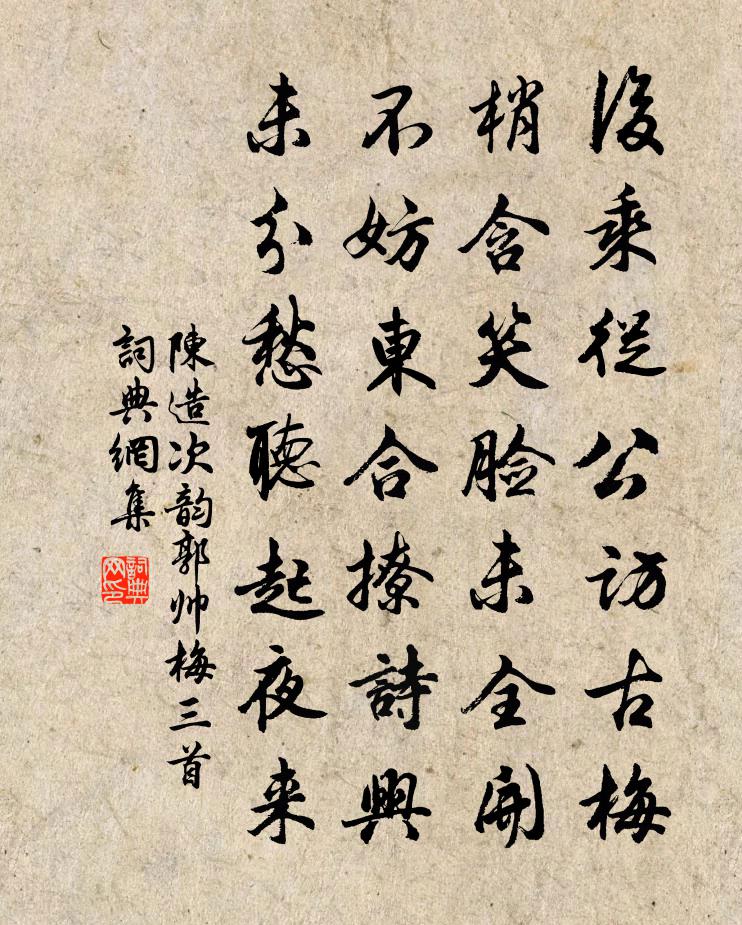 後乘從公訪古梅
梢含笑臉未全開
不妨東合撩詩興
未分愁聽起夜来
陳造次韵郭帅梅三首
詞典網集
詞典网印